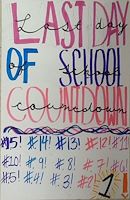 LAST DAY
Last day
OF SCHOOL
of School
COUNTDOWN
countdown
#15! #14! #13! #12! #11
#10! #9! #8! #7! #6!
#5! #4! #3! #2! 1!